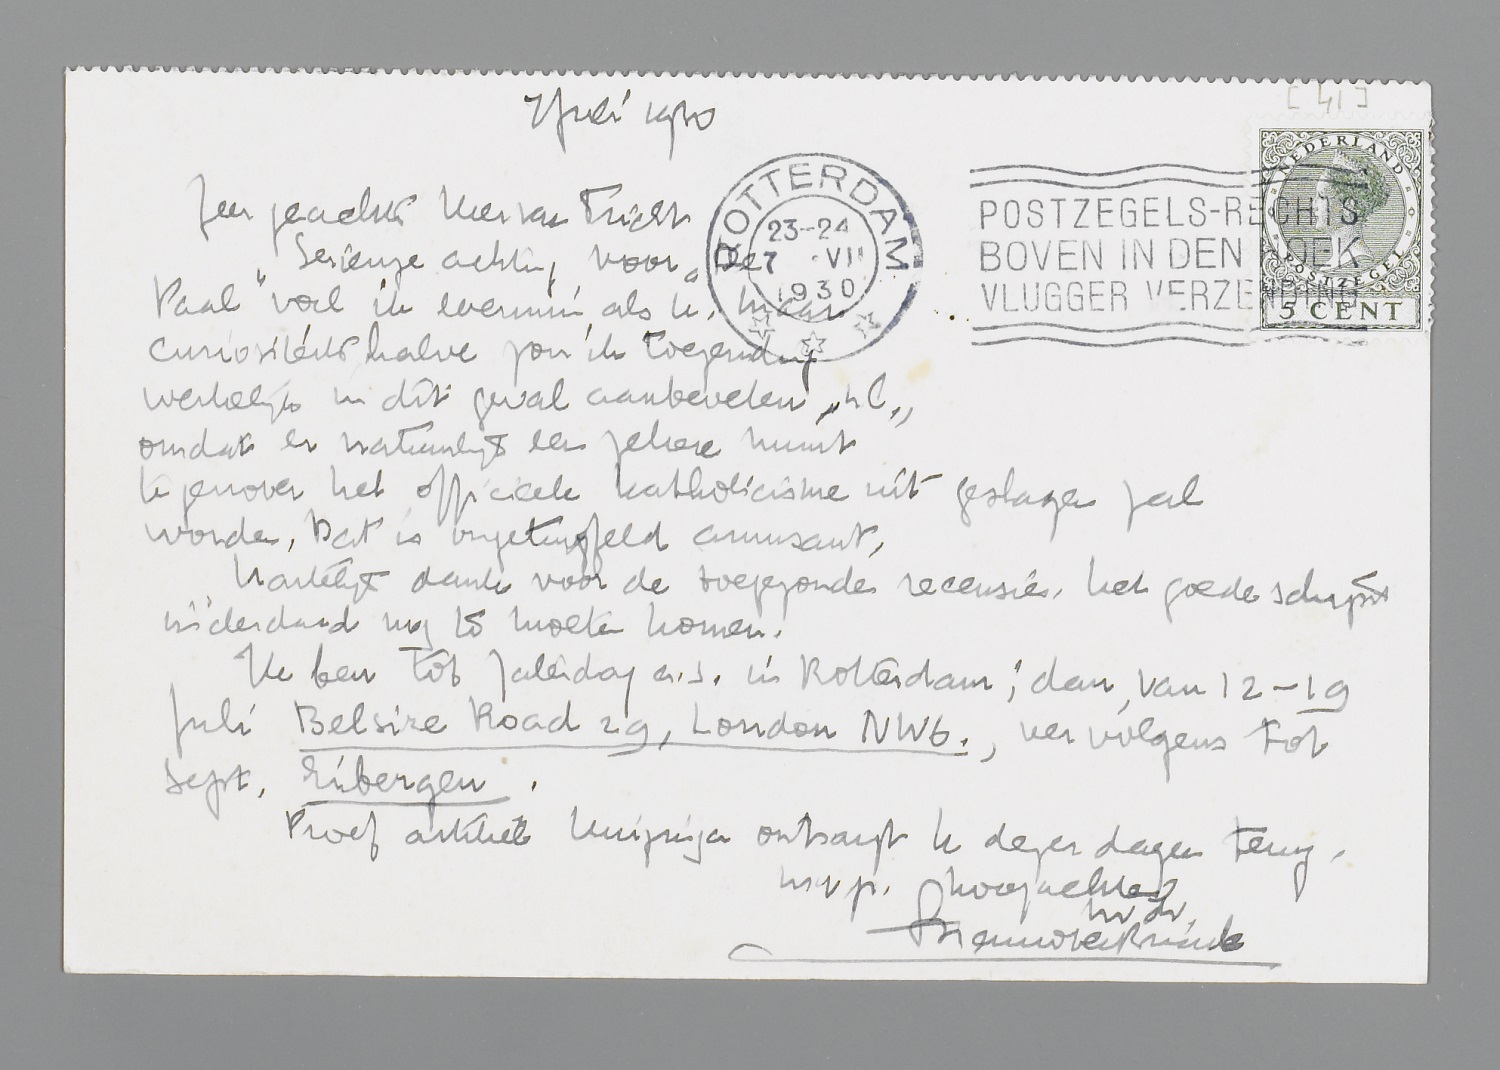 7 Juli 1930
[41]
NEDERLAND
POSTZEGEL
5 CENT
ROTTERDAM
23-24
7 VII
1930
POSTZEGELS-RECHTS
BOVEN IN DEN HOEK
VLUGGER VERZENDING
Zeer geachte Heer van Tricht
Serieuze achting voor „De
Paal" voel ik evenmin als U, maar
curiositeitshalve zou ik toezending
werkelijk in dit geval aanbevelen,
omdat er natuurlijk een zekere munt
tegenover het officieele katholicisme uit geslagen zal
worden. Dat is ongetwijfeld amusant.
Hartelijk dank voor de toegezonden recensies. het goede schijnt
inderdaad nog te moeten komen.
Ik ben tot Zaterdag a.s. in Rotterdam; dan, van 12-19
Juli Belsize Road 29, London NW6., vervolgens tot
Sept. Eibergen.
Proef artikel ontvangt U dezer dagen terug.
m.v.p. hoogachtend
Uw dw.
Menno ter Braak